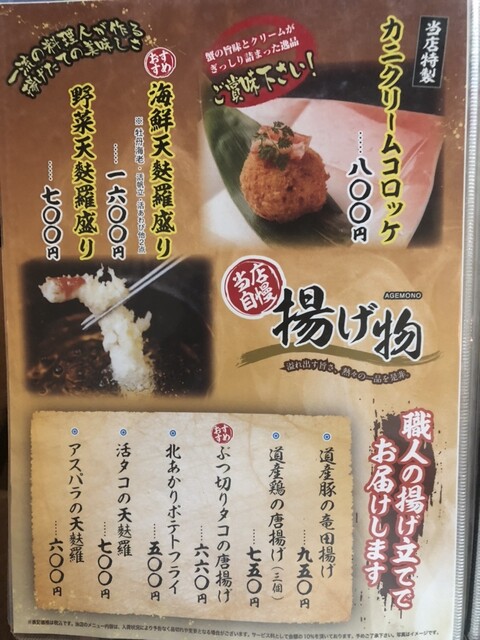 当店特製
カニクリームコロッケ
……八〇〇円
蟹の旨味とクリームが
ぎっしり詰まった逸品
ご賞味下さい!
おすすめ
海鮮天麩羅盛り
……一六〇〇円
野菜天麩羅盛り
……七〇〇円
当店自慢
揚げ物
AGEMONO
職人の揚げ立てで
お届けします
道産豚の竜田揚げ
……九五〇円
道産鶏の唐揚げ(三個)
……七五〇円
おすすめ
ぶつ切りタコの唐揚げ
……六六〇円
北あかりポテトフライ
……五〇〇円
活タコの天麩羅
……七〇〇円
アスパラの天麩羅
……六〇〇円